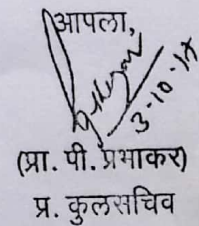 आपला,
3-10-17
(प्रा. पी. प्रभाकर)
प्र. कुलसचिव